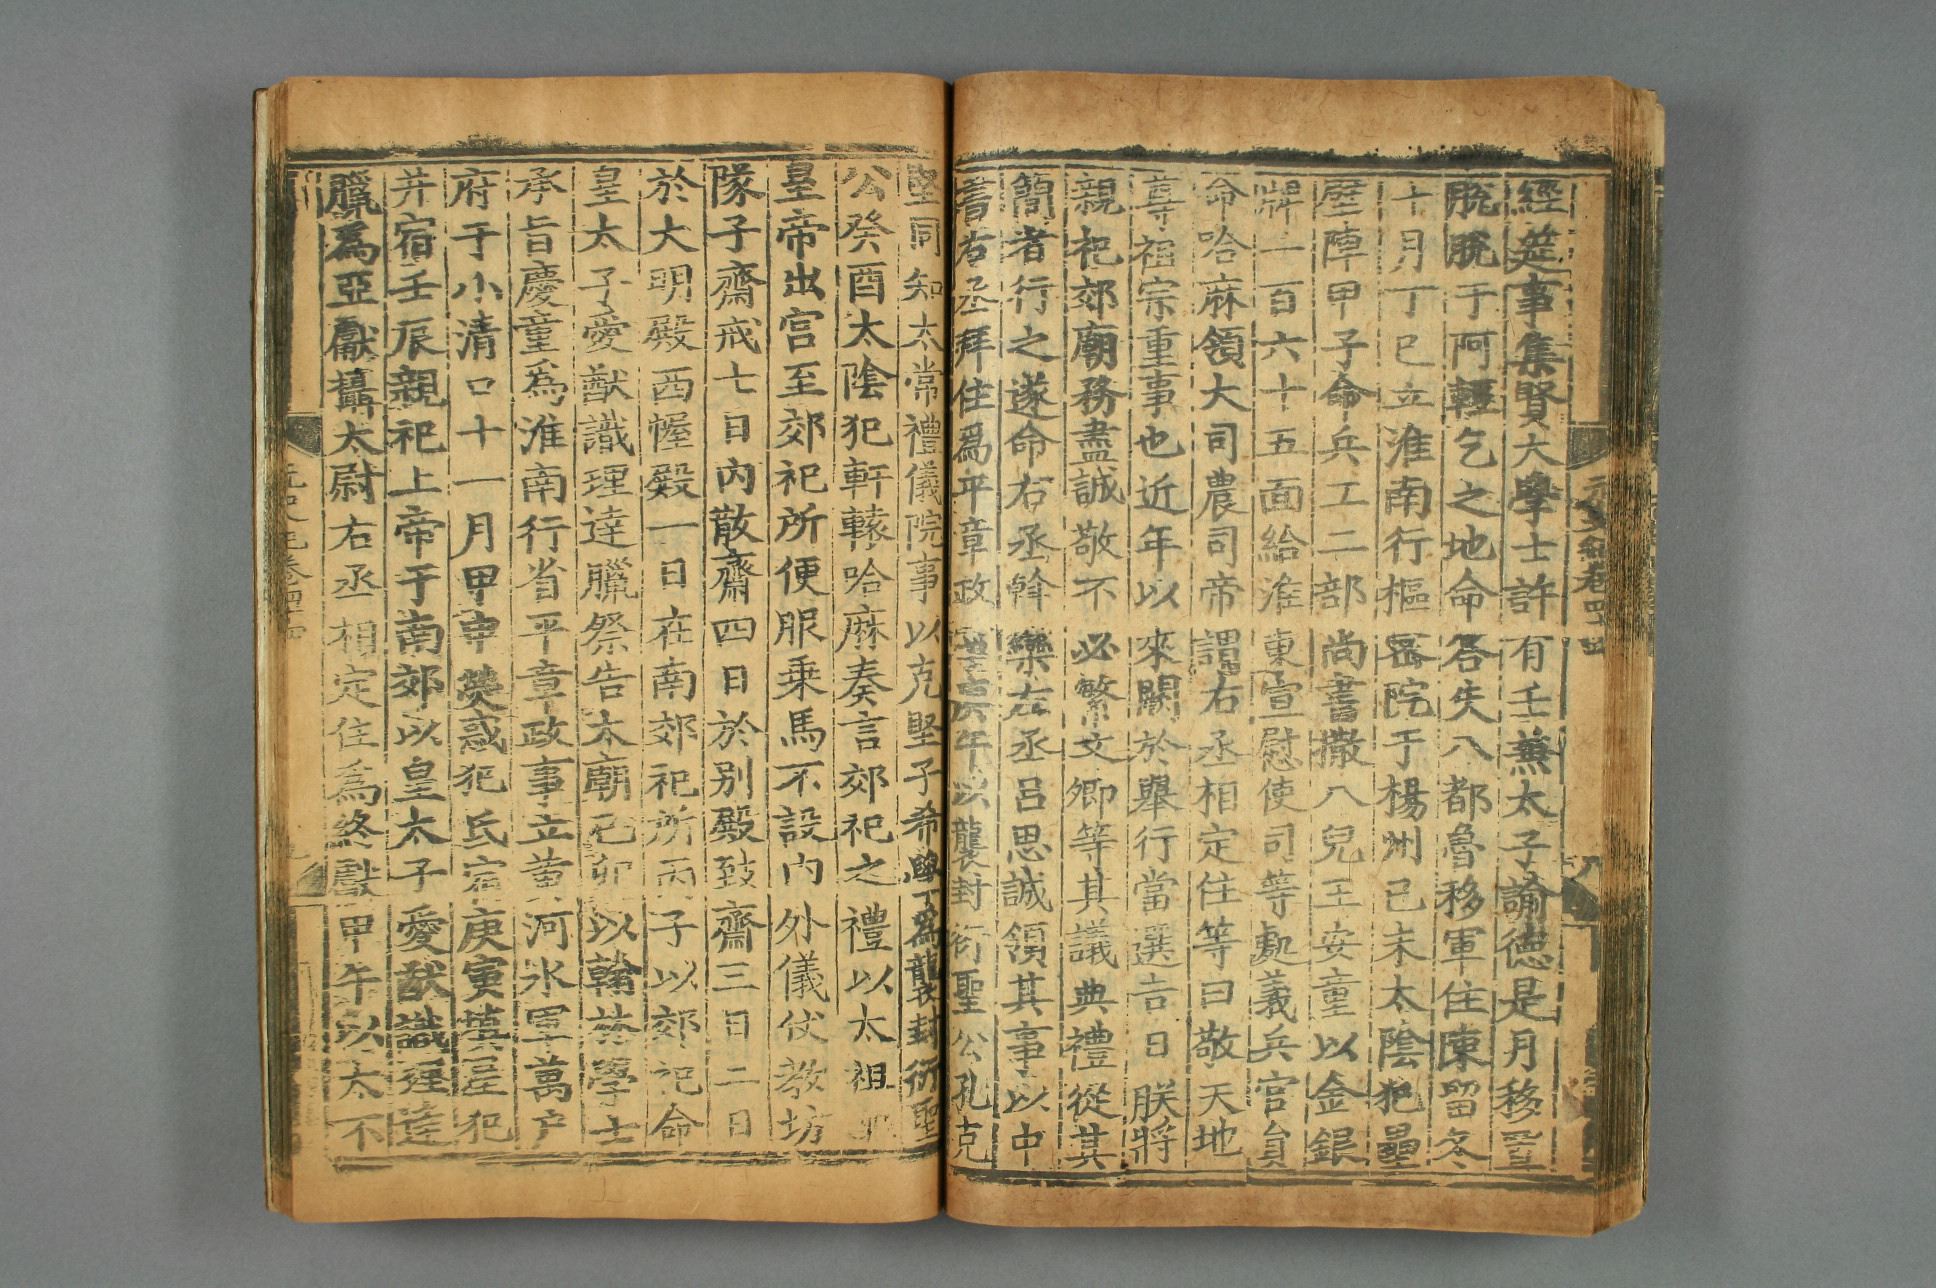 元史紀卷四十四
八
經筵事集賢大學士許有壬兼太子諭德是月移置
脫脫于阿輕乞之地命答失八都魯移軍住陳留冬
十月丁巳立淮南行樞密院于楊州己未太陰犯壘
壁陣甲子命兵工二部尚書撒八兒王安童以金銀
牌一百六十五面給淮東宣慰使司等處義兵官員
命哈麻領大司農司帝謂右丞相定住等曰敬天地
尊祖宗重事也近年以來闕於舉行當選吉日朕將
親祀郊廟務盡誠敬不必繁文卿等其議典禮從其
簡者行之遂命右丞斡欒左丞呂思誠領其事以中
書右丞拜住爲平章政事庚午以襲封衍聖公孔克
堅同知太常禮儀院事以克堅子希學爲襲封衍聖
公癸酉太陰犯軒轅哈麻奏言郊祀之禮以太祖配
皇帝出宮至郊祀所便服乗馬不設内外儀仗教坊
隊子齋戒七日内散齋四日於别殿致齋三日二日
於大明殿西幄殿一日在南郊祀所丙子以郊祀命
皇太子愛猷識理達臘祭告太廟己卯以翰林學士
承旨慶童爲淮南行省平章政事立黄河水軍萬户
府于小清口十一月甲申熒惑犯氐宿庚寅填星犯
井宿壬辰親祀上帝于南郊以皇太子愛猷識理達
臘爲亞獻攝太尉右丞相定住爲終獻甲午以太不
元史紀卷四十四